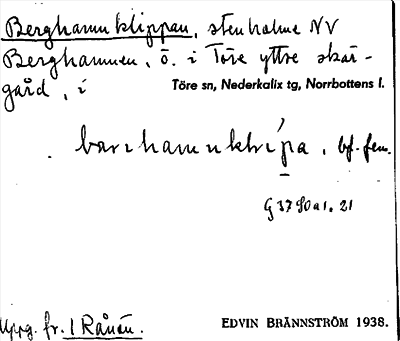 Berghamnklippan, stenholme NV
Berghamnen, ö. i Töre yttre skär-
gård, i Töre sn, Nederkalix tg, Norrbottens l.
bf. fem.
Uppg. fr. 1 Rånån.
EDVIN BRÄNNSTRÖM 1938.